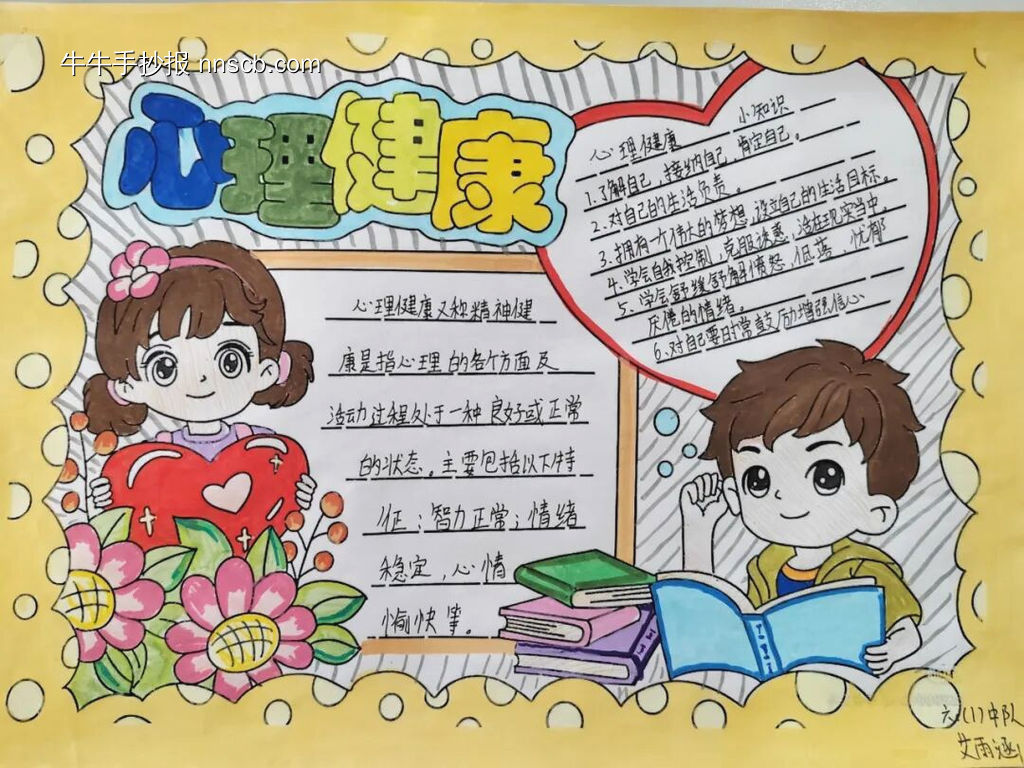 牛牛手抄报 nnscb.com
心理健康
心理健康 小知识
1.了解自己，接纳自己，肯定自己。
2.对自己的生活负责。
3.拥有一个伟大的梦想，设对自己的生活目标。
4.学会自我控制，克服诱惑，活在现实当中。
5.学会舒缓舒解愤怒，低落，忧郁
厌倦的情绪。
6.对自己要时常鼓励增强信心
心理健康又称精神健
康是指心理的各个方面及
活动过程处于一种良好或正常
的状态。主要包括以下特
征：智力正常；情绪
稳定，心情
愉快等。
六(1)中队
艾雨涵